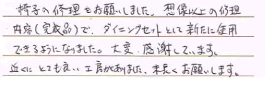 椅子の修理をお願いしました。想像以上の修理
内容(完成品)で、ダイニングセットとして新たに使用
できるようになりました。大変、感謝しています。
近くにとても良い工房がありました。末長くお願いします。